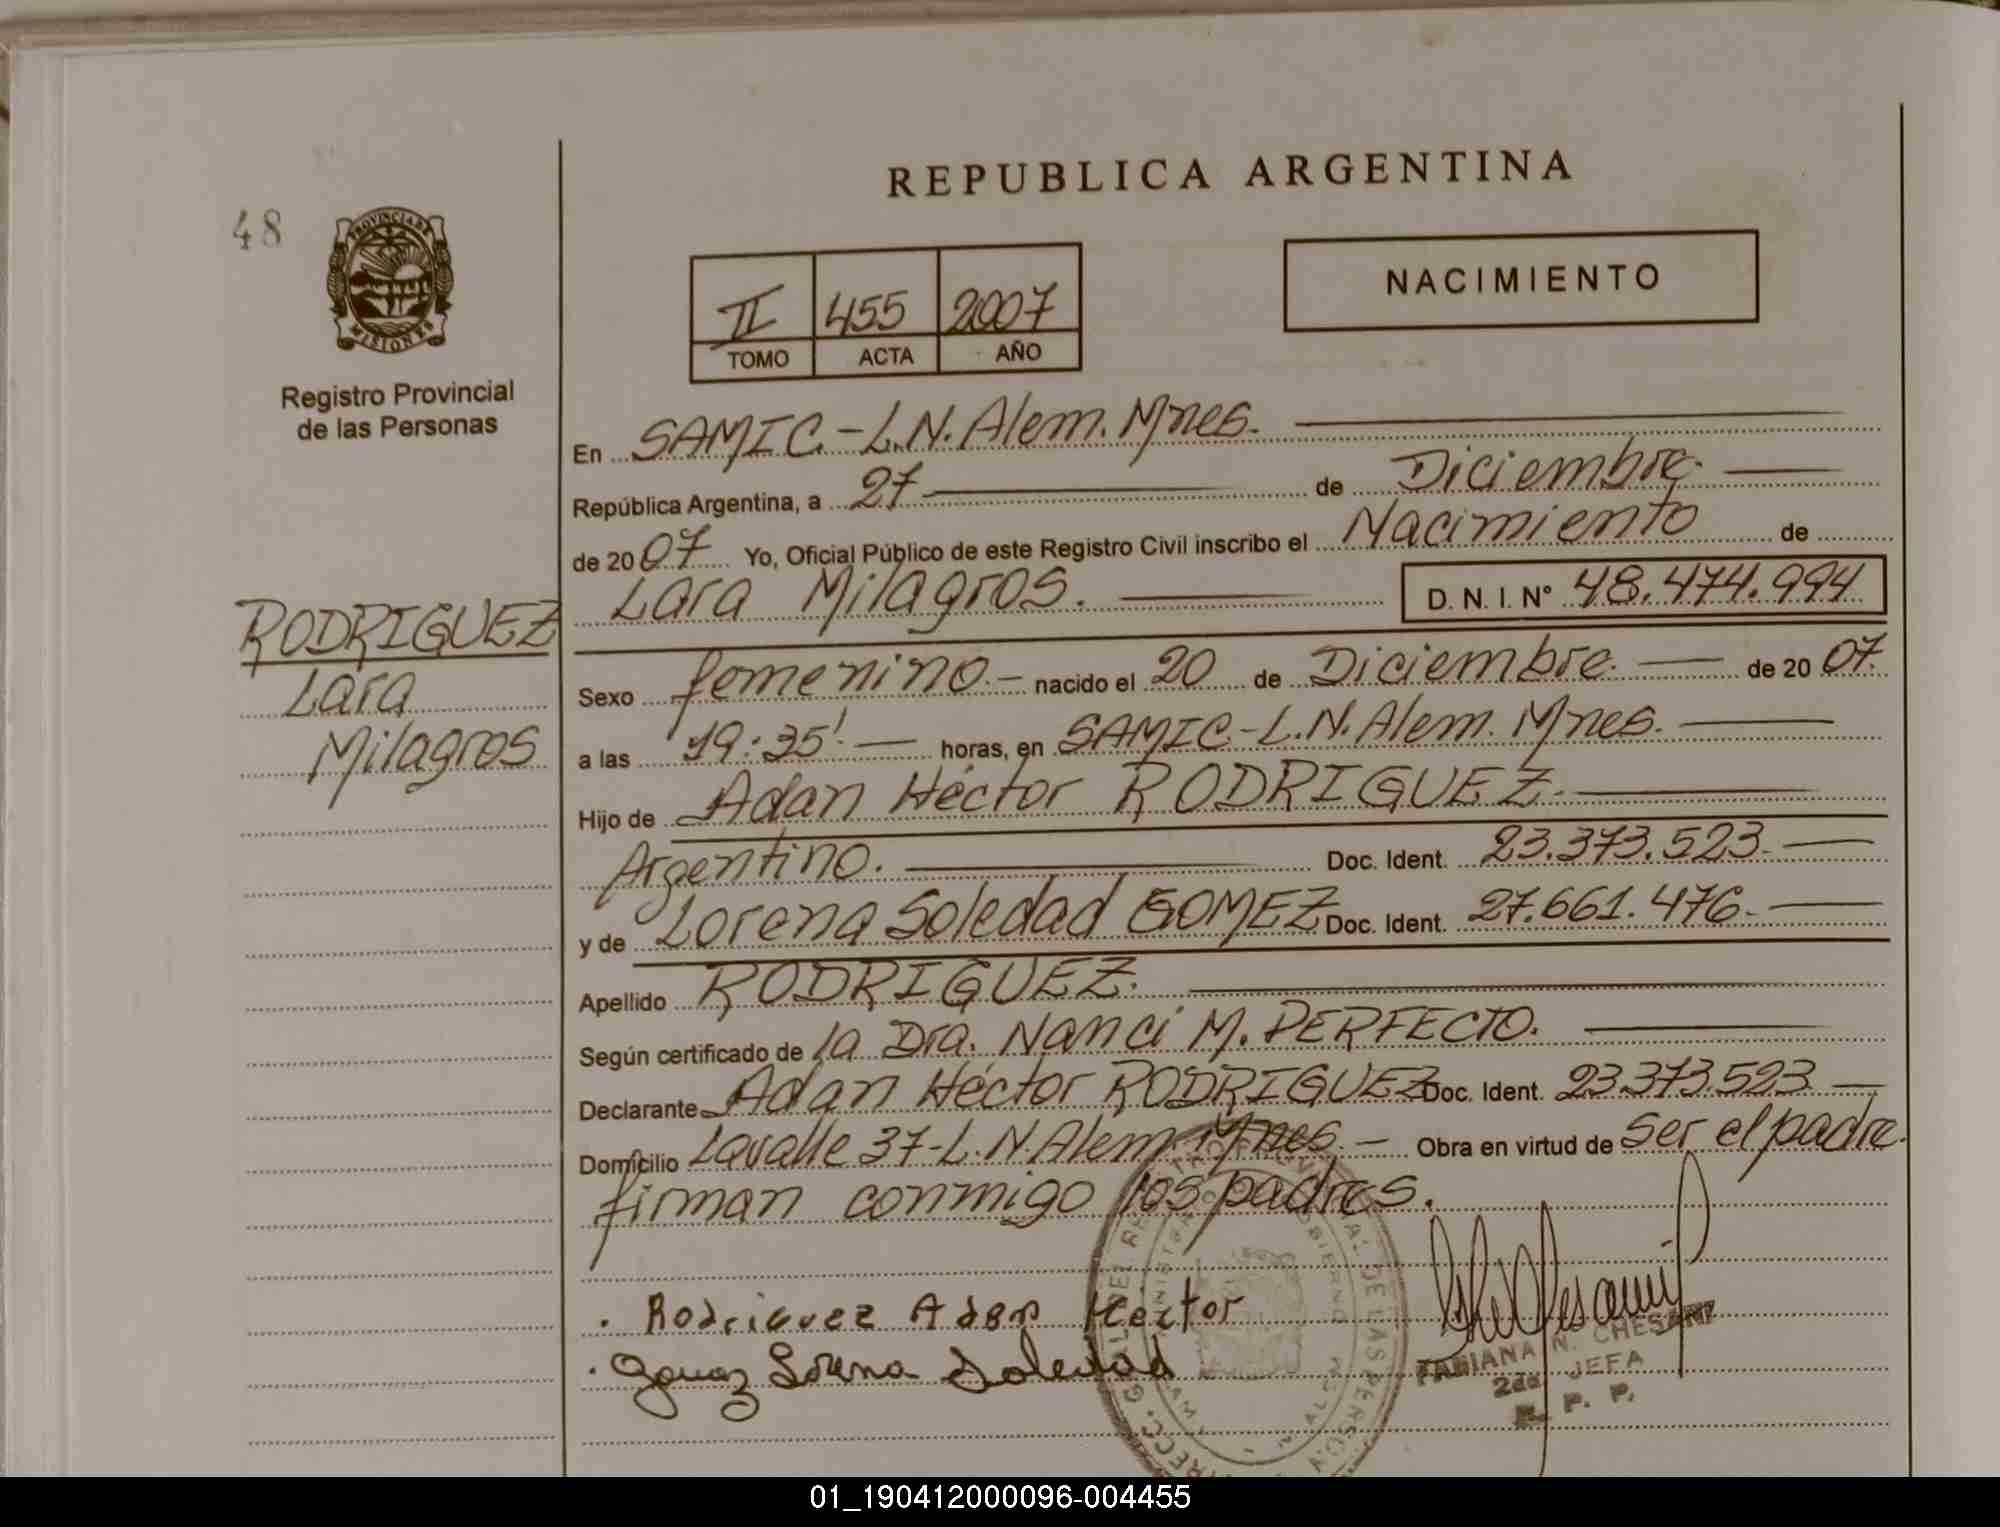 REPUBLICA ARGENTINA
48
PROVINCIA DE
MISIONES
Registro Provincial
de las Personas
II 455 2007
TOMO ACTA AÑO
NACIMIENTO
En SAMIC.-L.N.Alem.Mnes.
República Argentina, a 27 de Diciembre.
de 2007 Yo, Oficial Público de este Registro Civil inscribo el Nacimiento de
Lara Milagros. D. N. I. Nº 48.474.994
RODRIGUEZ
Lara
Milagros
Sexo femenino.- nacido el 20 de Diciembre. de 2007.
a las 19:35'. horas, en SAMIC-L.N.Alem. Mnes.
Hijo de Adan Héctor RODRIGUEZ.
Argentino. Doc. Ident. 23.373.523.
y de Lorena Soledad GOMEZ Doc. Ident. 27.661.476.
Apellido RODRIGUEZ.
Según certificado de la Dra. Nanci M. PERFECTO.
Declarante Adan Héctor RODRIGUEZ Doc. Ident. 23.373.523.
Domicilio Lavalle 37-L.N.Alem Mnes. Obra en virtud de Ser el padre.
firman conmigo los padres.
. Rodriguez Adan Hector
. Lorena Soledad
FABIANA N. CHESANI
2da. JEFA
R. P. P.
01_190412000096-004455